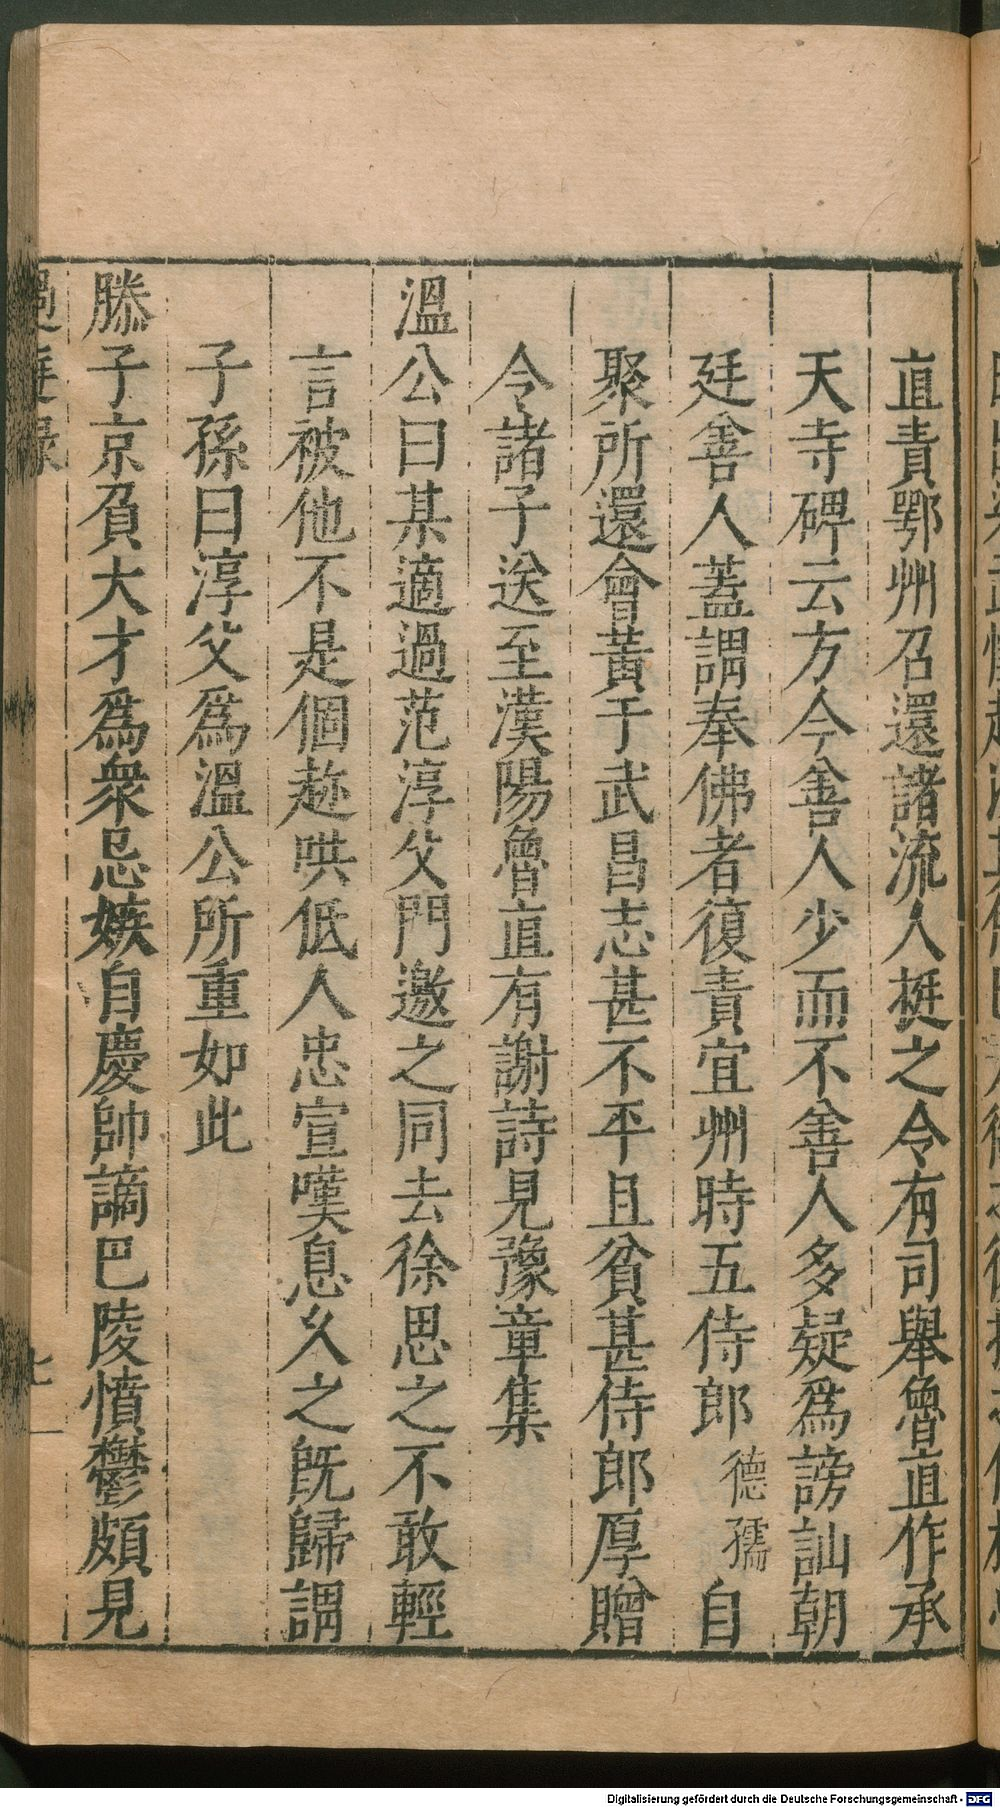 直責鄂州召還諸流人挺之令有司舉魯直作承
天寺碑云方今善人少而不善人多疑爲謗訕朝
廷善人蓋謂奉佛者復責宜州時五侍郎德孺自
聚所還會黃于武昌志甚不平且貧甚侍郎厚贈
令諸子送至漢陽魯直有謝詩見豫章集
溫公曰某適過范淳父門邀之同去徐思之不敢輕
言被他不是個趂哄低人忠宣嘆息久之旣歸謂
子孫曰淳父爲溫公所重如此
滕子京負大才爲衆忌嫉自慶帥謫巴陵憤鬱頗見
過庭錄
七
Digitalisierung gefördert durch die Deutsche Forschungsgemeinschaft - DFG